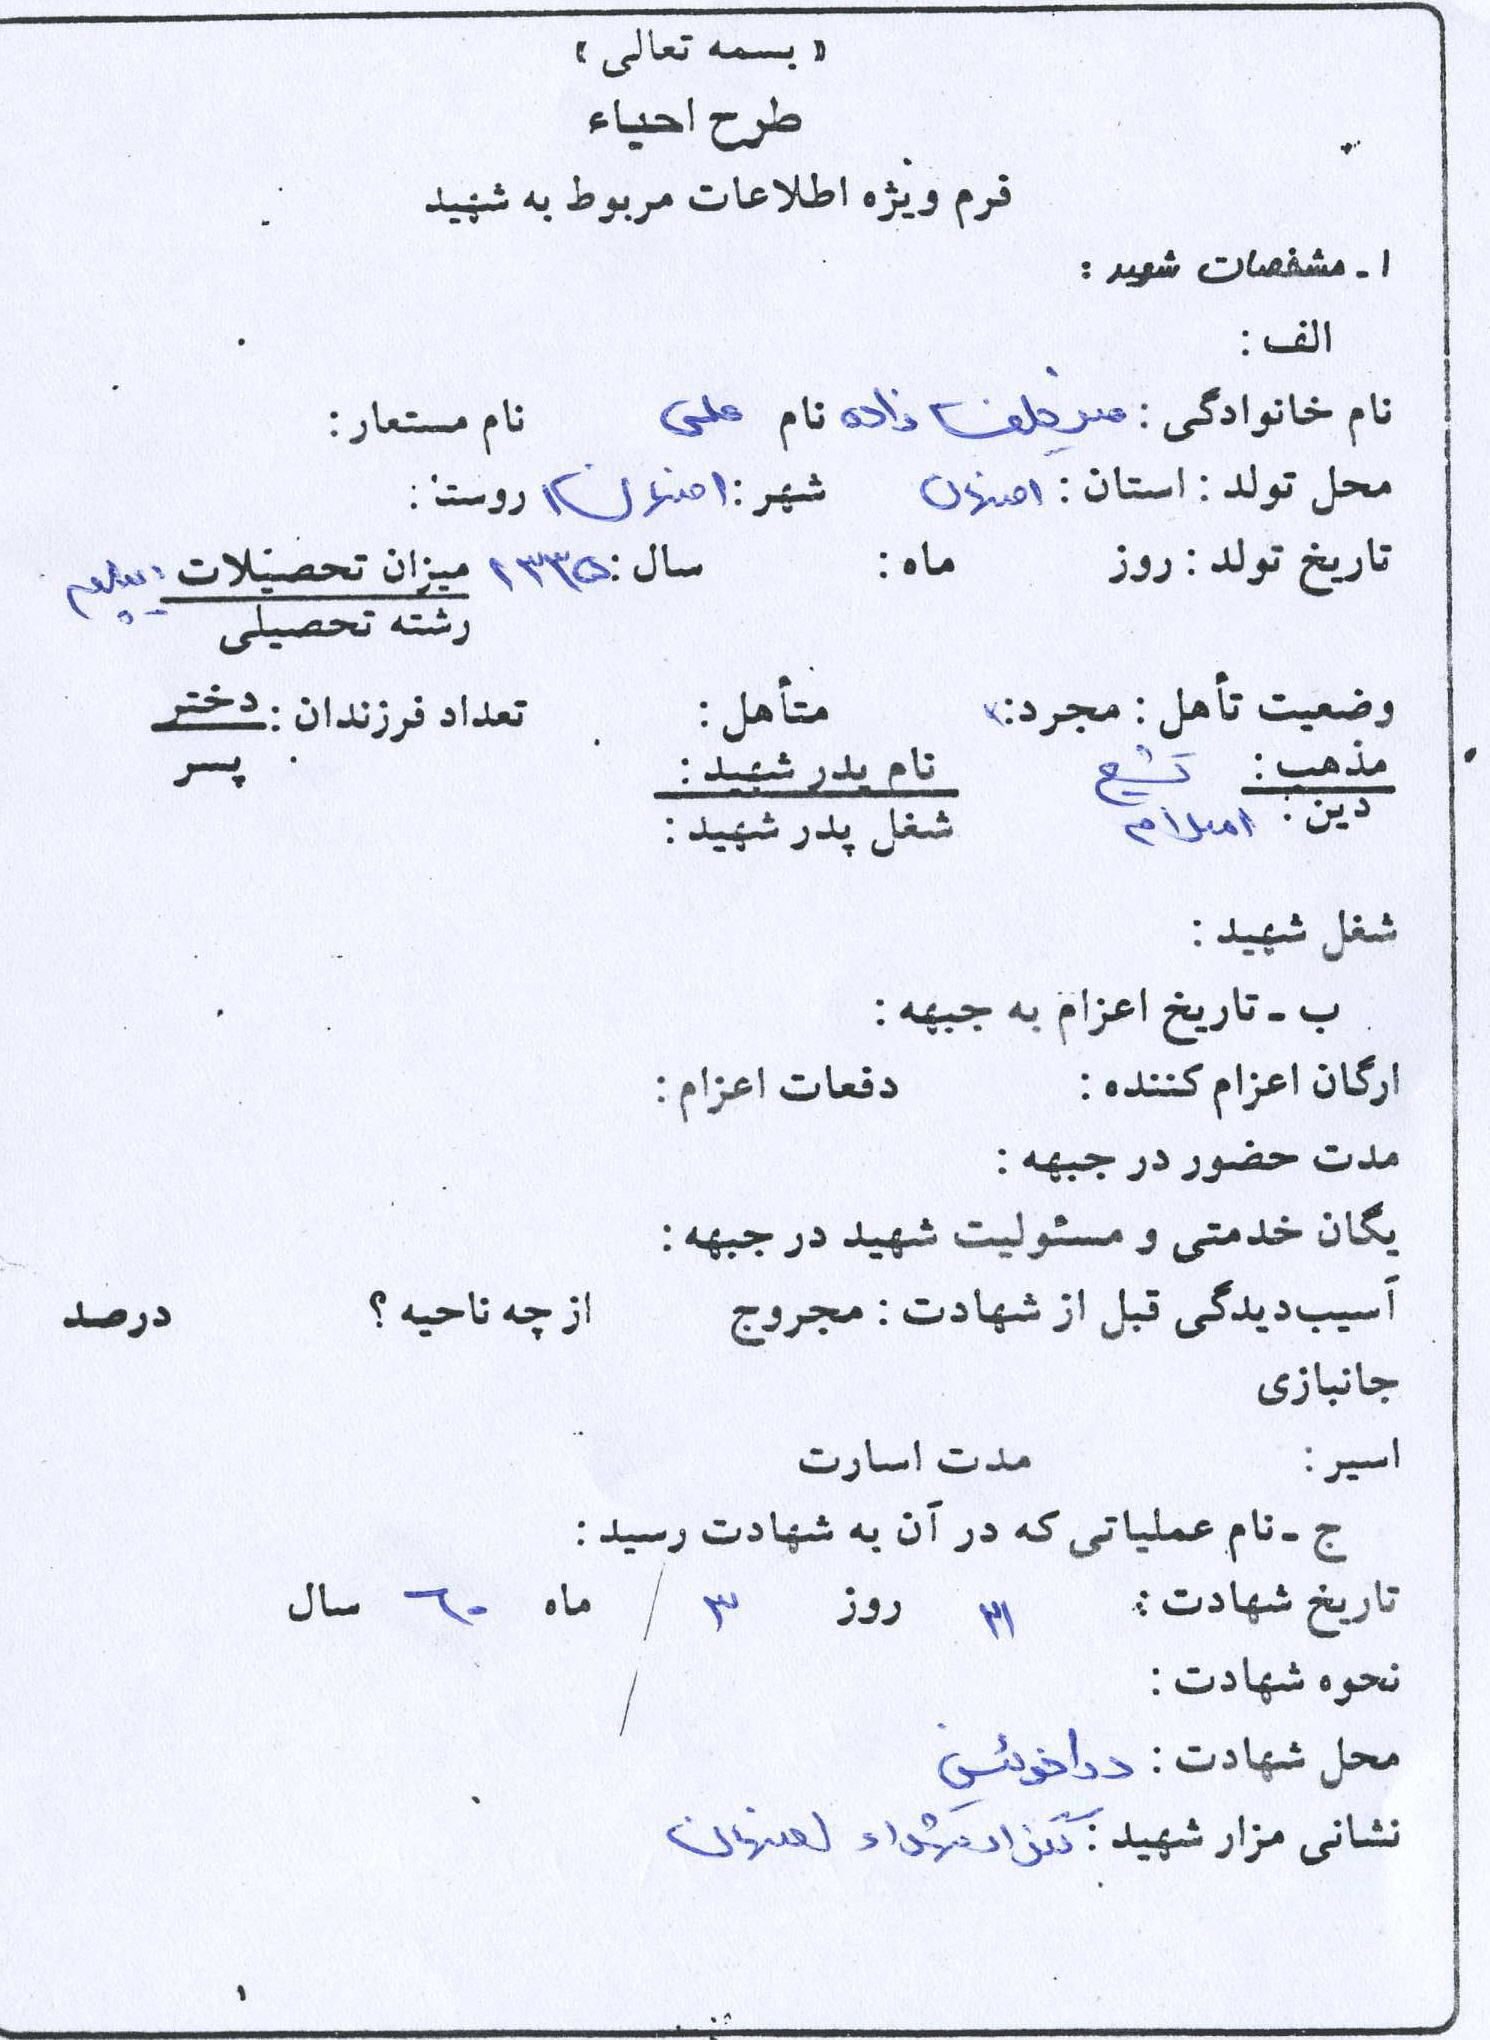 « بسمه تعالی »
طرح احیاء
فرم ویژه اطلاعات مربوط به شهید
۱ ـ مشخصات شهید :
الف :
نام خانوادگی : میرخلف زاده نام علی نام مستعار :
محل تولد : استان : اصفهان شهر : اصفهان روستا :
تاریخ تولد : روز ماه : سال : ۱۳۳۵ میزان تحصیلات دیپلم
رشته تحصیلی
وضعیت تأهل : مجرد : متأهل : تعداد فرزندان : دختر
پسر
مذهب : تشیع نام پدر شهید :
دین : اسلام شغل پدر شهید :
شغل شهید :
ب ـ تاریخ اعزام به جبهه :
ارگان اعزام کننده : دفعات اعزام :
مدت حضور در جبهه :
یگان خدمتی و مسئولیت شهید در جبهه :
آسیب‌دیدگی قبل از شهادت : مجروح از چه ناحیه ؟ درصد
جانبازی
اسیر : مدت اسارت
ج ـ نام عملیاتی که در آن به شهادت رسید :
تاریخ شهادت : ۳۱ روز ۳ ماه ۶۰ سال
نحوه شهادت :
محل شهادت : دارخوئین
نشانی مزار شهید : گلزار شهداء اصفهان
۱